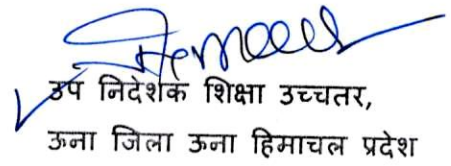 उप निदेशक शिक्षा उच्चतर,
ऊना जिला ऊना हिमाचल प्रदेश